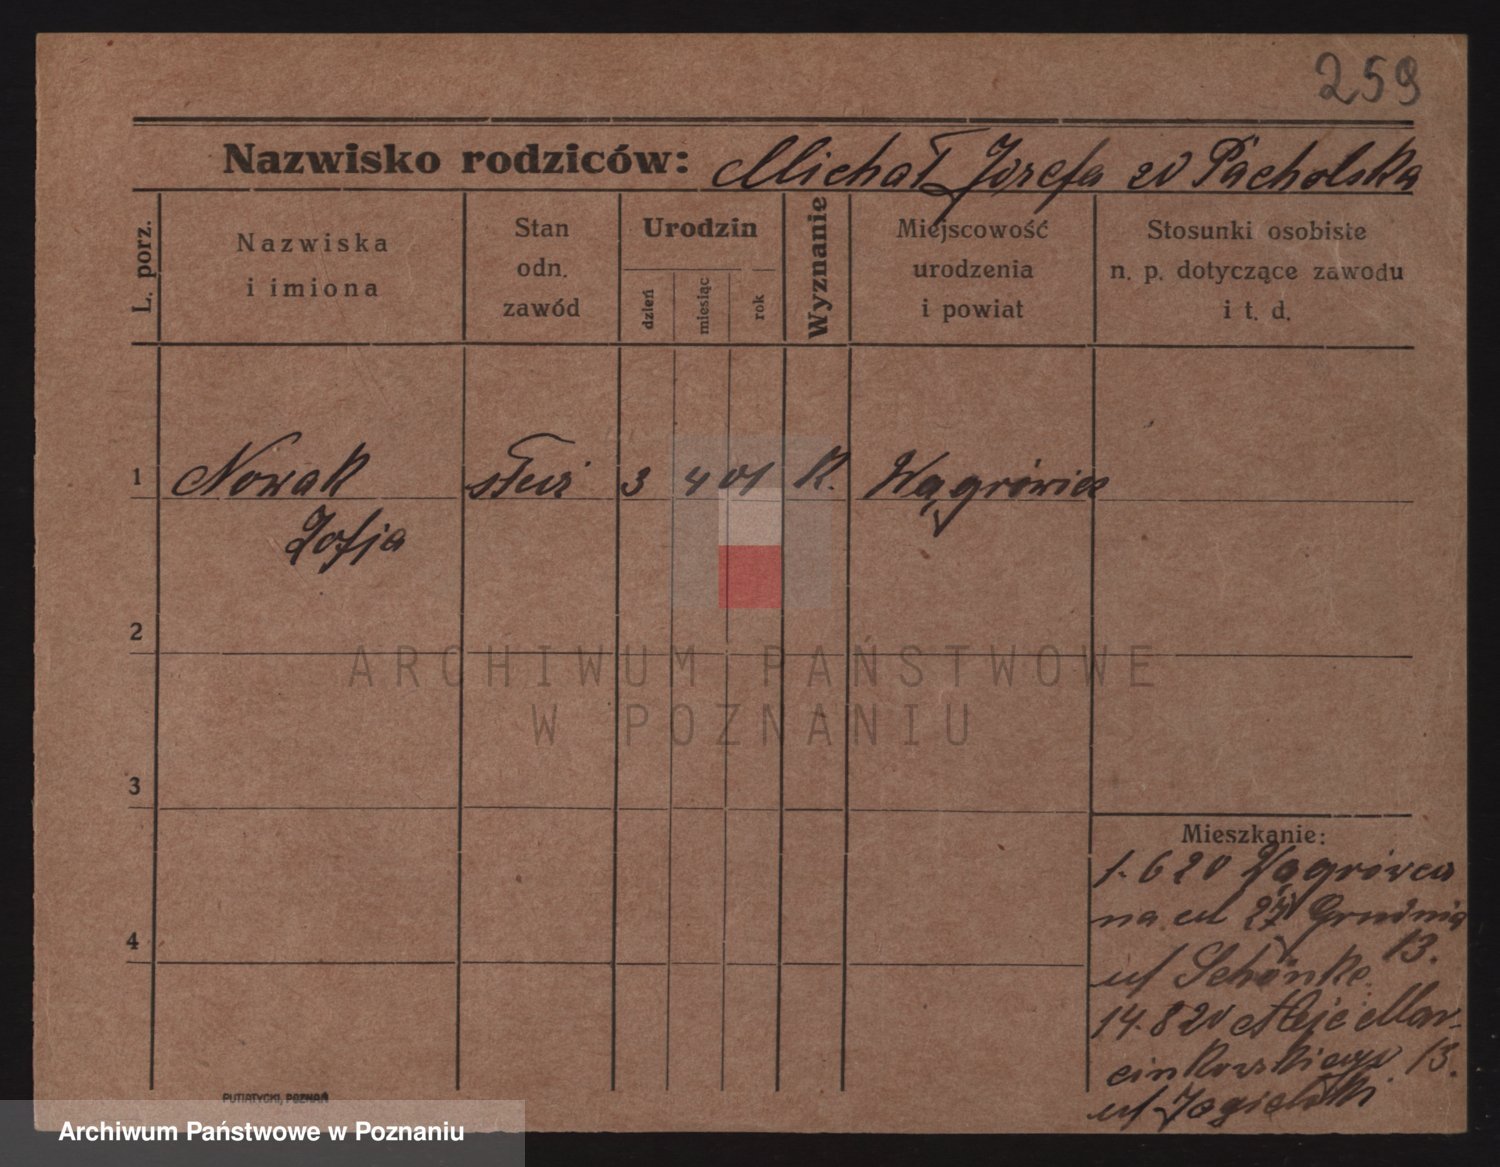 259
Nazwisko rodziców: Michał Józefa w Pacholska
L. porz.
Nazwiska
i imiona
Stan
odn.
zawód
Urodzin
dzień
miesiąc
rok
Wyznanie
Miejscowość
urodzenia
i powiat
Stosunki osobiste
n. p. dotyczące zawodu
i t. d.
1 Nowak służ 3 4 01 K. Wągrówiec
Zofja
2
ARCHIWUM PAŃSTWOWE
W POZNANIU
3
Mieszkanie:
1.6 20 Wągrówca
na ul 27 Grudnia
13.
4
ul Schönke
14.8 20 Aleje Mar-
cinkowskiego 13.
ul Jagielski
PUTIATYCKI, POZNAŃ
Archiwum Państwowe w Poznaniu